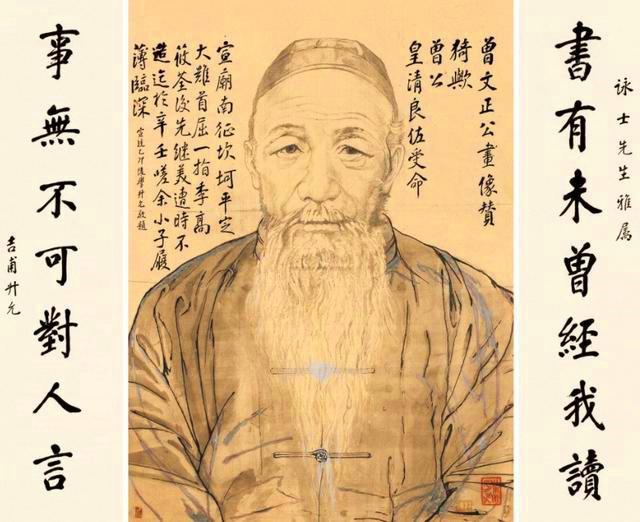 書有未曾經我讀
詠士先生雅属
曾文正公畫像贊
猗歟
曾公
皇清良佐受命
宣廟南征坎坷平定
大難首屈一指李高
筱荃後先継美遭時不
造迄於辛壬嗟余小子履
薄臨深 宣統乙卯後學升允敬題
事無不可對人言
吉甫升允